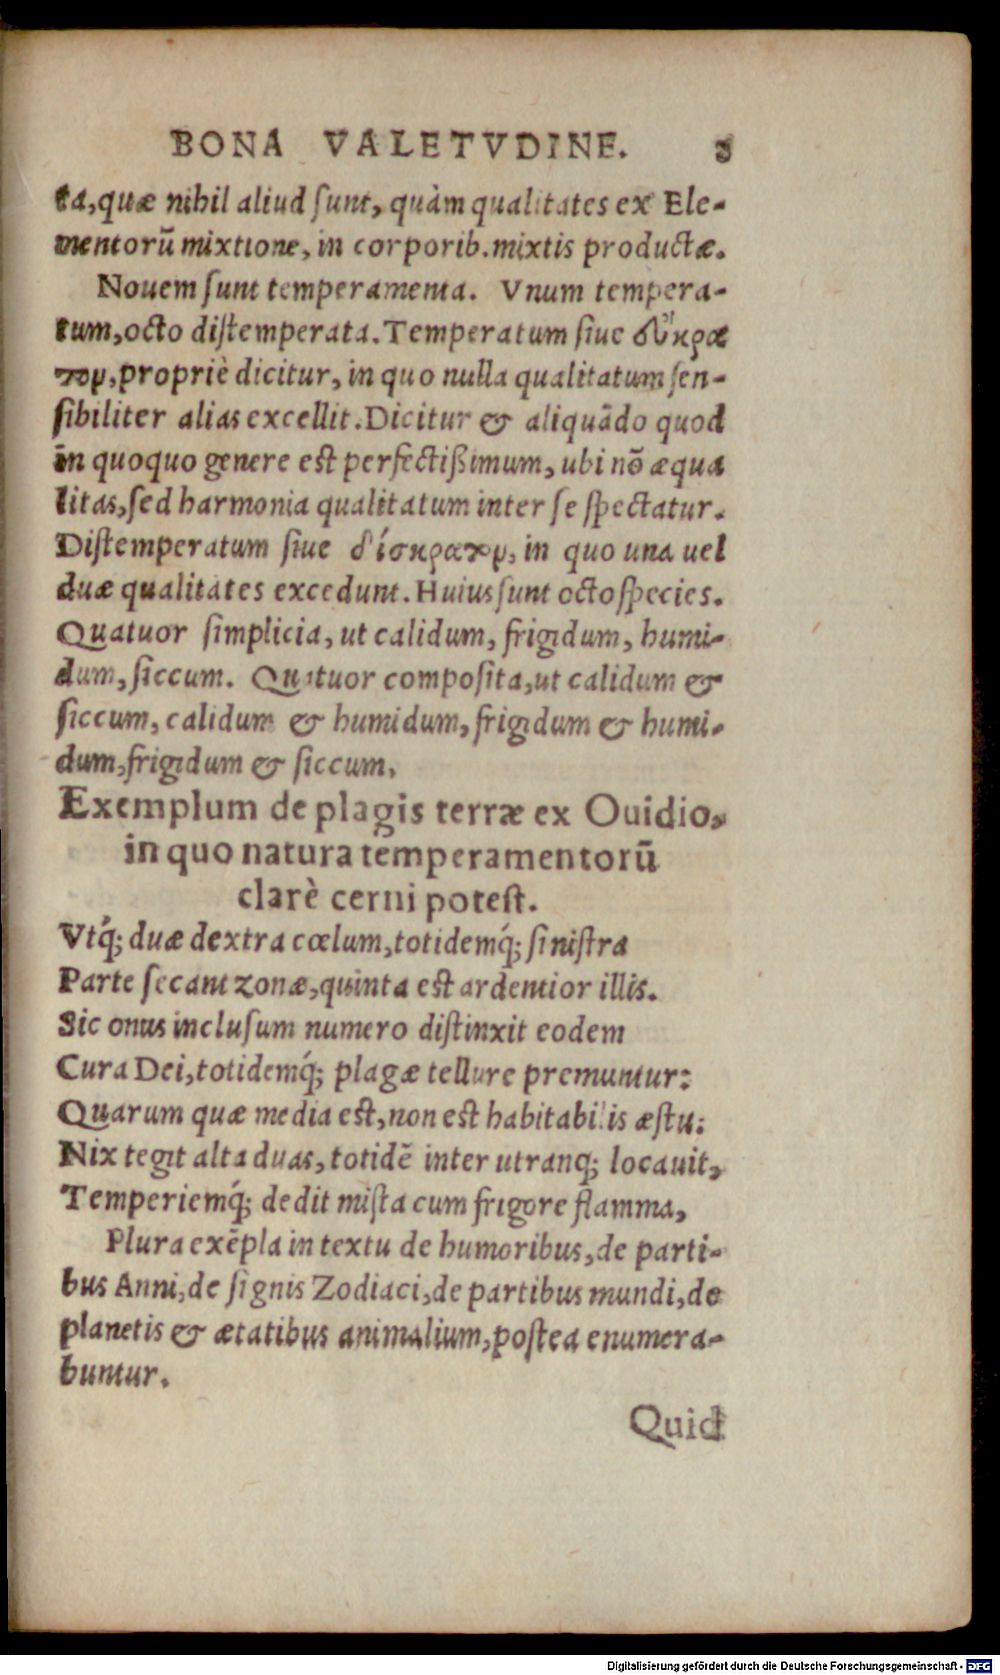 BONA VALETVDINE. 3
ta, quæ nihil aliud ſunt, quàm qualitates ex Ele-
mentorũ mixtione, in corporib. mixtis productæ.
Nouem ſunt temperamenta. Vnum tempera-
tum, octo diſtemperata. Temperatum ſiue ἐύκρα
τομ, propriè dicitur, in quo nulla qualitatum ſen-
ſibiliter alias excellit. Dicitur & aliquãdo quod
in quoquo genere est perfectißimum, ubi nõ æqua
litas, ſed harmonia qualitatum inter ſe ſpectatur.
Diſtemperatum ſiue δίσκρατομ, in quo una uel
duæ qualitates excedunt. Huius ſunt octo ſpecies.
Quatuor ſimplicia, ut calidum, frigidum, humi-
dum, ſiccum. Quatuor compoſita, ut calidum &
ſiccum, calidum & humidum, frigidum & humi-
dum, frigidum & ſiccum.
Exemplum de plagis terræ ex Ouidio,
in quo natura temperamentorũ
clarè cerni poteſt.
Vtq́; duæ dextra cœlum, totidemq́; ſiniſtra
Parte ſecant zonæ, quinta est ardentior illis.
Sic onus incluſum numero diſtinxit eodem
Cura Dei, totidemq́; plagæ tellure premuntur:
Quarum quæ media est, non est habitabilis æſtu:
Nix tegit alta duas, totidẽ inter utranq; locauit,
Temperiemq́; dedit miſta cum frigore flamma,
Plura exẽpla in textu de humoribus, de parti-
bus Anni, de ſignis Zodiaci, de partibus mundi, de
planetis & ætatibus animalium, poſtea enumera-
buntur.
Quid
Digitalisierung gefördert durch die Deutsche Forschungsgemeinschaft - DFG